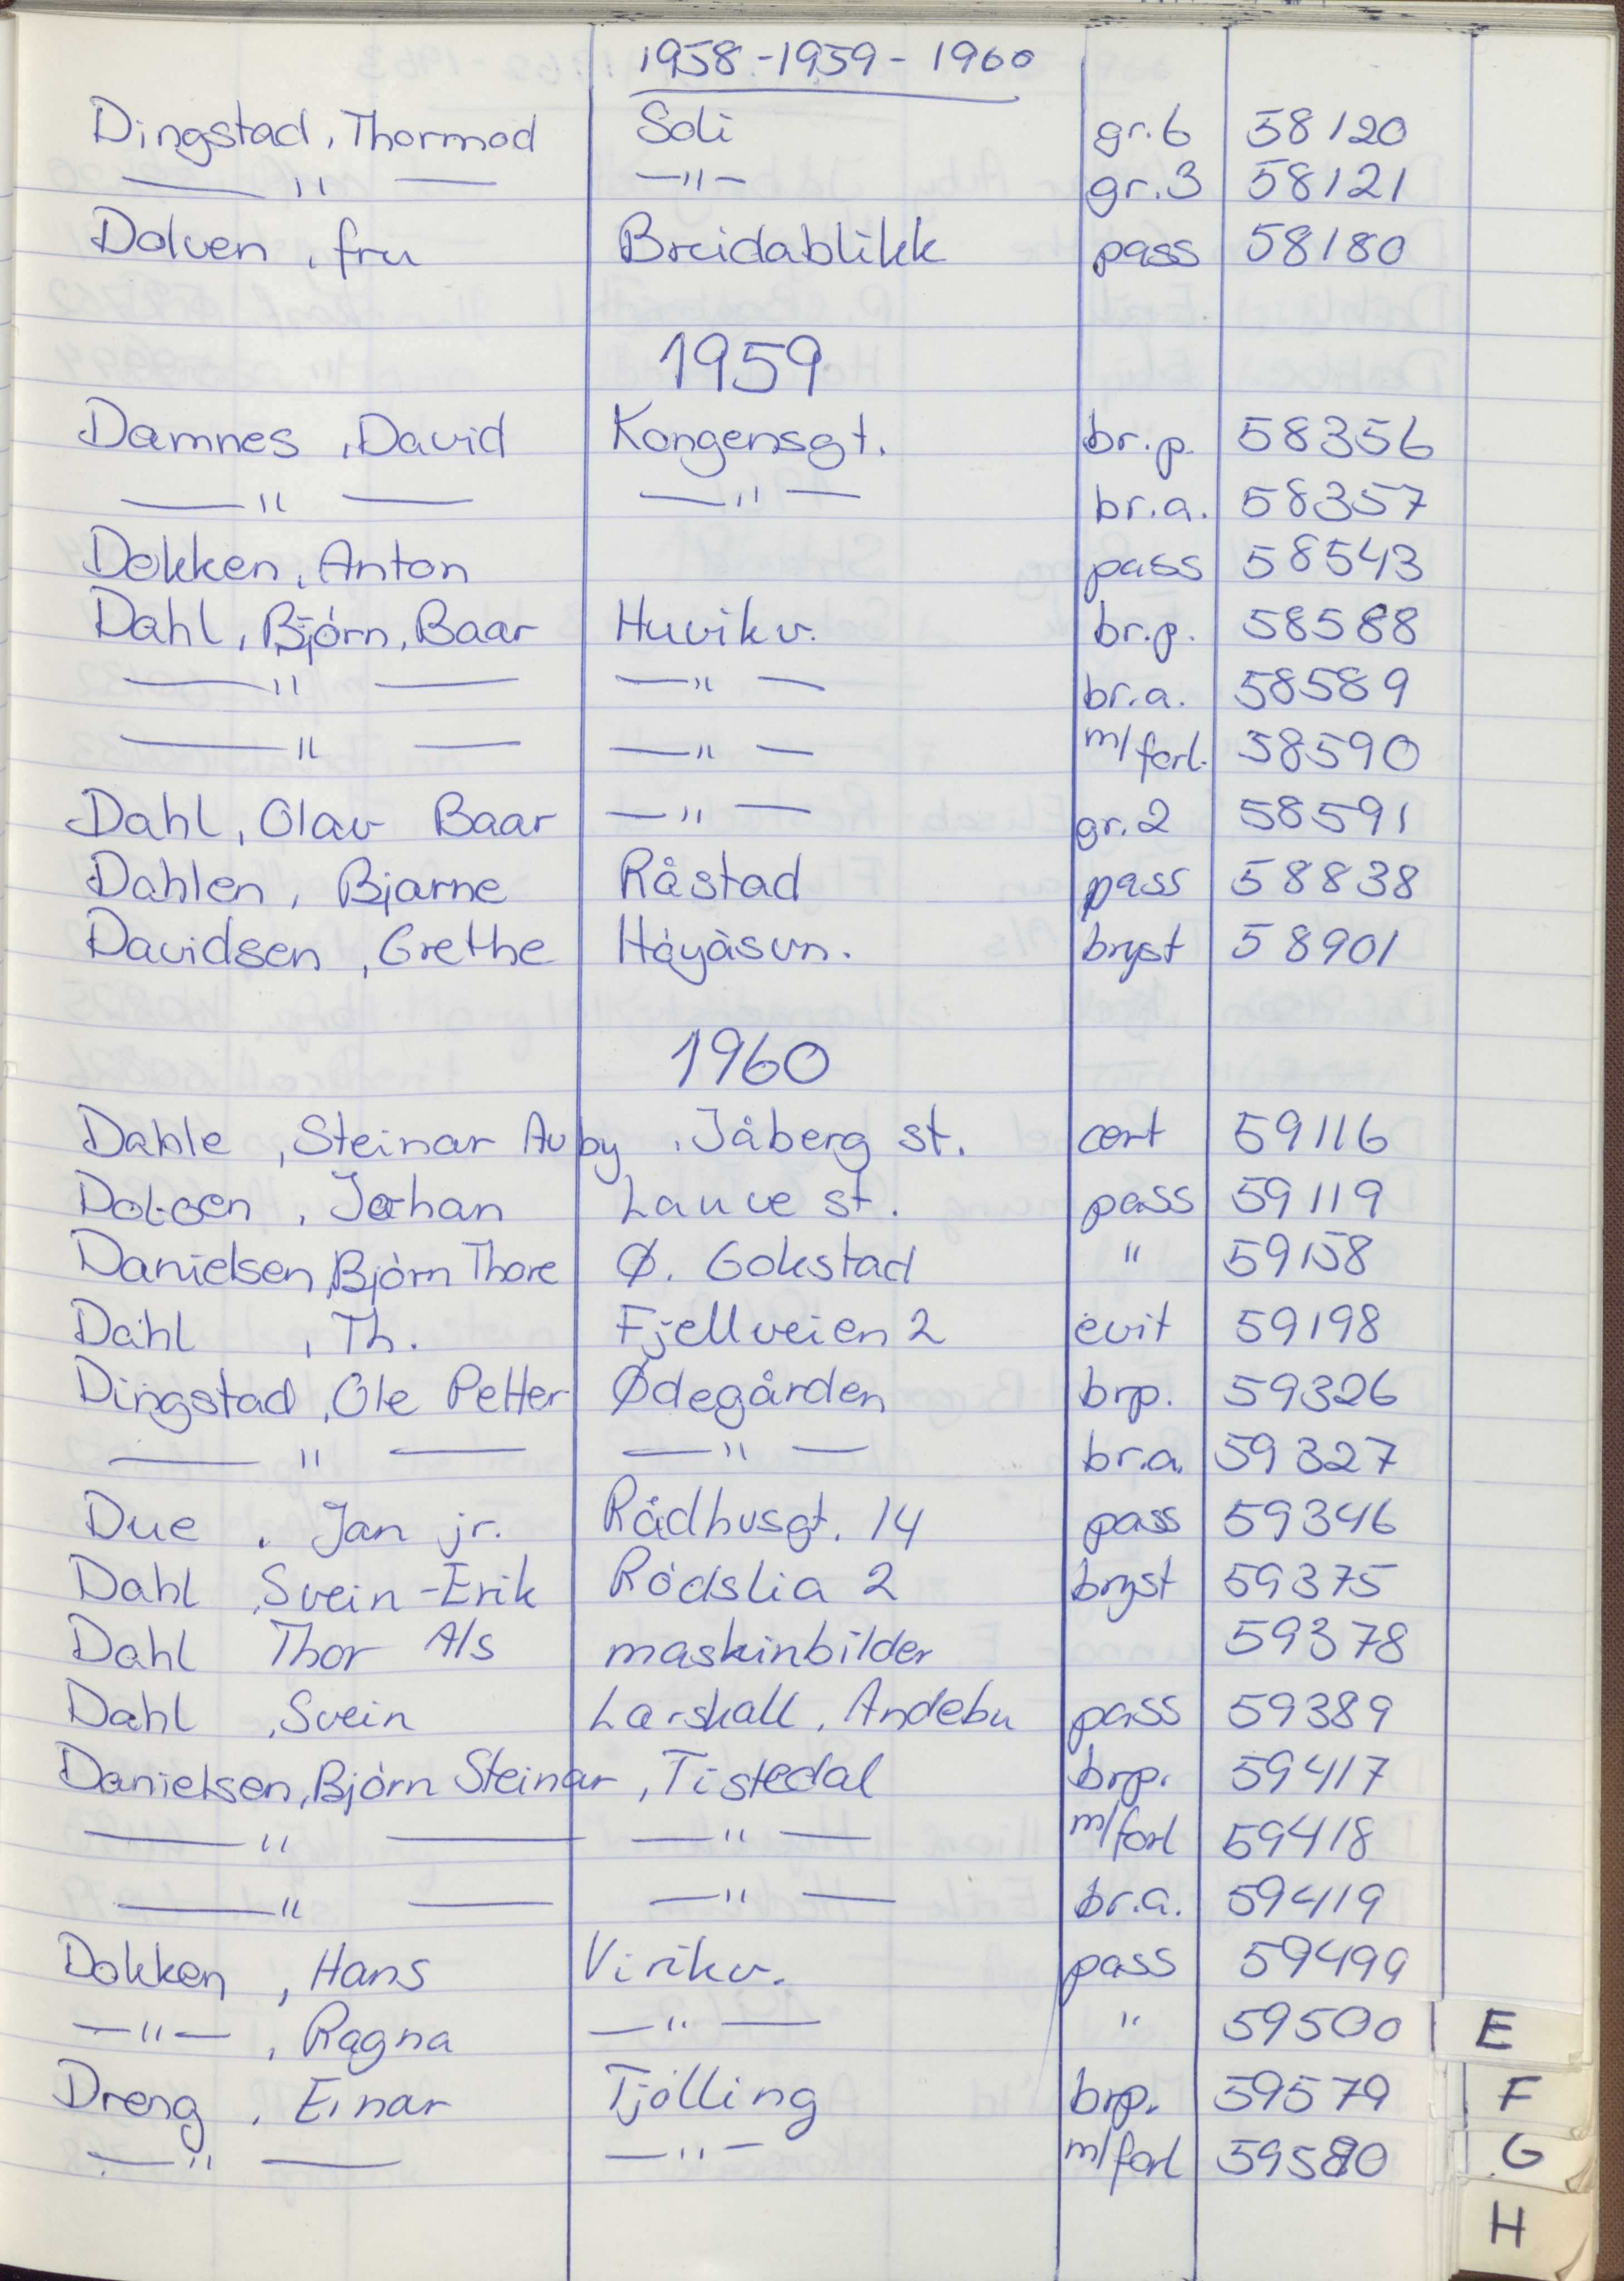 1958-1959-1960
Dingstad, Thormod Soli gr.6 58120
—"— —"— gr.3 58121
Dolven, fru Breidablikk pass 58180
1959
Damnes, David Kongensgt. br.p. 58356
—"— —"— br.a. 58357
Dokken, Anton pass 58543
Dahl, Bjørn, Baar Huvikv. br.p. 58588
—"— —"— br.a. 58589
—"— —"— m/forl. 58590
Dahl, Olav Baar —"— gr.2 58591
Dahlen, Bjarne Råstad pass 58838
Davidsen, Grethe Høyåsvn. bryst 58901
1960
Dahle, Steinar Auby, Jåberg st. cert 59116
Johan Lauve st. pass 59119
Danielsen, Bjørn Thore Ø. Gokstad " 59158
Dahl, Th. Fjellveien 2 evit 59198
Dingstad, Ole Petter Ødegården brp. 59326
—"— —"— br.a. 59327
Due, Jan jr. Rådhusgt. 14 pass 59346
Dahl, Svein-Erik Rødslia 2 bryst 59375
Dahl Thor A/s maskinbilder 59378
Dahl, Svein Larskall, Andebu pass 59389
Danielsen, Bjørn Steinar, Tistedal brp. 59417
—"— —"— m/forl 59418
—"— —"— br.a. 59419
Dokken, Hans Virikv. pass 59499
—"—, Ragna —"— " 59500
E
Dreng, Einar Tjølling brp. 59579
F
—"— —"— m/forl 59580
G
H